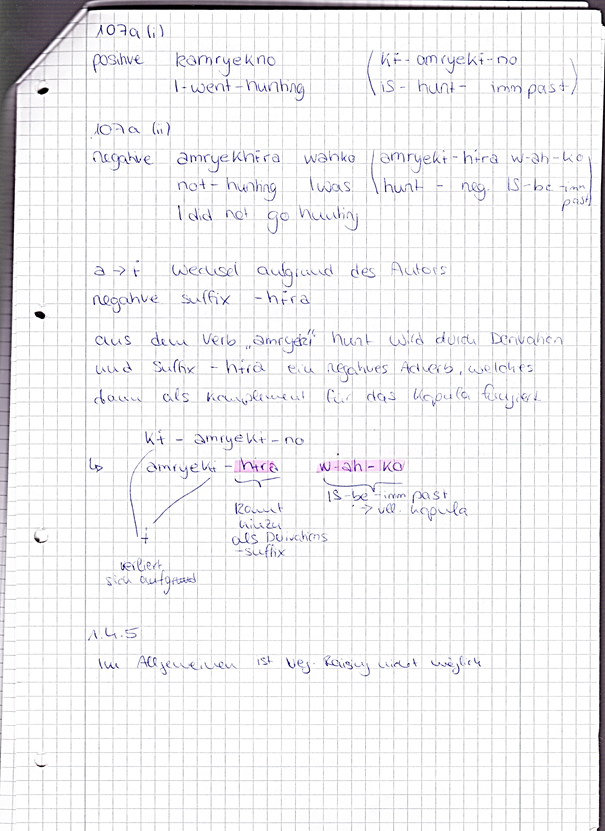 107a (i)
positive kamryekno (kɨ-amryekɨ-no
I-went-hunting 1S-hunt-imm past)
107a (ii)
negative amryekhɨra wahko (amryekɨ-hɨra w-ah-ko
not-hunting I was hunt-neg. 1S-be-imm past)
I did not go hunting
a → ɨ Wechsel aufgrund des Autors
negative suffix -hɨra
aus dem Verb „amryekɨ" hunt wird durch Derivation
und Suffix -hɨra ein negatives Adverb, welches
dann als Komplement für das Kopula fungiert
kɨ-amryekɨ-no
↳ amryekɨ-hɨra w-ah-ko
1S-be-imm past
→ vll. Kopula
kommt
hinzu
als Derivations
-suffix
ɨ
verliert
sich aufgrund
1.4.5
Im Allgemeinen ist Neg-Raising nicht möglich